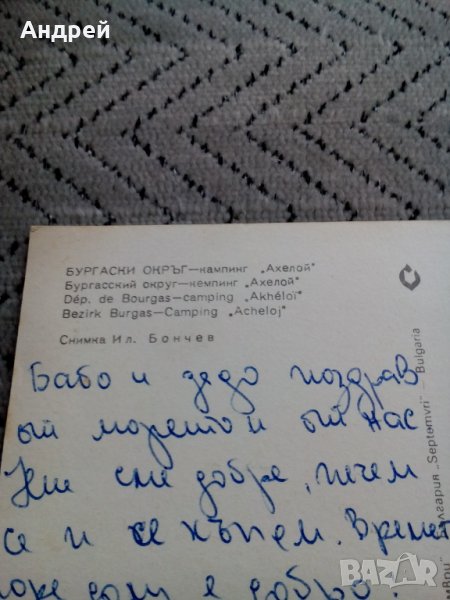 Андрей
БУРГАСКИ ОКРЪГ—кампинг „Ахелой"
Бургасский округ—кемпинг „Ахелой"
Dép. de Bourgas—camping „Akhéloï"
Bezirk Burgas—Camping „Acheloj"
Снимка Ил. Бончев
Бабо и дядо поздрав
от морето и от нас
Ние сме добре, печем
се и се къпем. Времет
е добро.
България „Septemvri" – Bulgaria
BAZAR